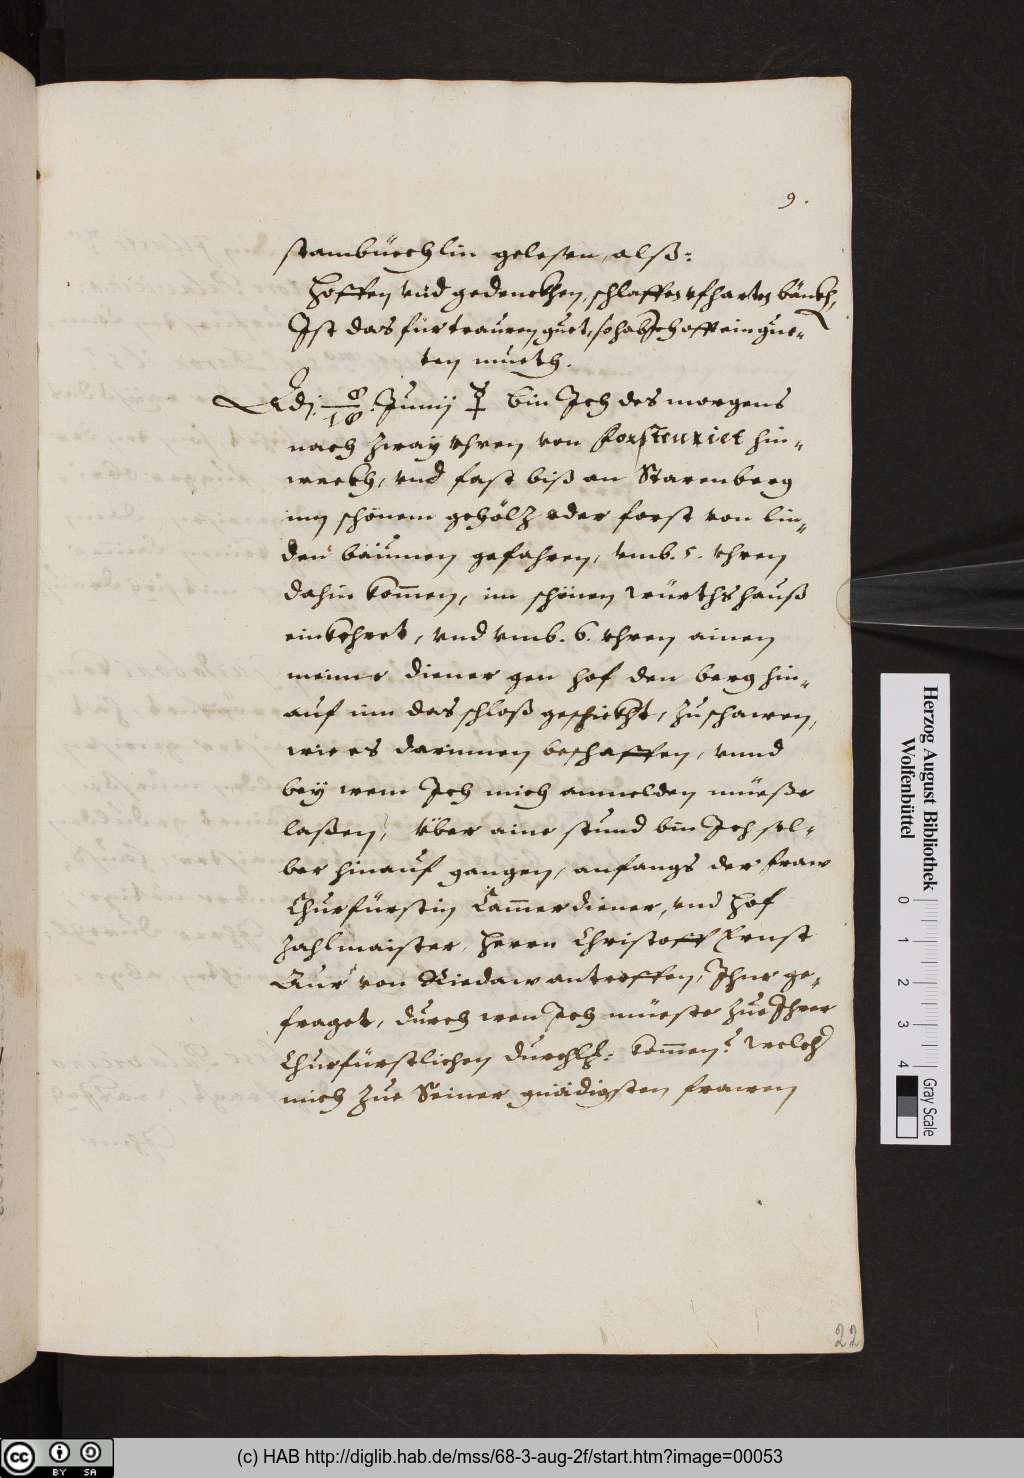 9.
stambüechlin gelesen, alß:
Hoffen vnd gedenckhen, schlaffen vf harten bänckh,
Ist das für trauren guet, so hab Ich offt ein gue-
ten mueth.
Adj. 8/18. Junij ☿ bin Ich des morgens
nach zway vhren von Forstenriet hin-
weckh, vnd fast biß an Starenberg
inn schönem gehöltz oder forst von lin-
den bäumen gefahren, vmb. 5. vhren
dahin kom̄en, im schönen würthshauß
einkehret, vnd vmb. 6. vhren ainen
meiner diener gen hof den berg hin-
auf inn das schloß geschickht, zu schawen,
wie es darinnen beschaffen, vnnd
bey wem Ich mich anmelden müeße
laßen, Vber aine stund bin Ich sel-
ber hinauf gangen, anfangs der fraw
Churfürstin Cam̄erdiener, vnd Hof
zahlmaister, Herrn Christoff Ernst
von Riedaw antroffen, Ihne ge-
fraget, durch wen Ich müeste zue Ihrer
Churfürstlichen durchl: kom̄en? welcher
mich zue Seiner gnädigsten frawen
22
Herzog August Bibliothek
Wolfenbüttel
0 1 2 3 4
Gray Scale
cc BY SA
(c) HAB http://diglib.hab.de/mss/68-3-aug-2f/start.htm?image=00053